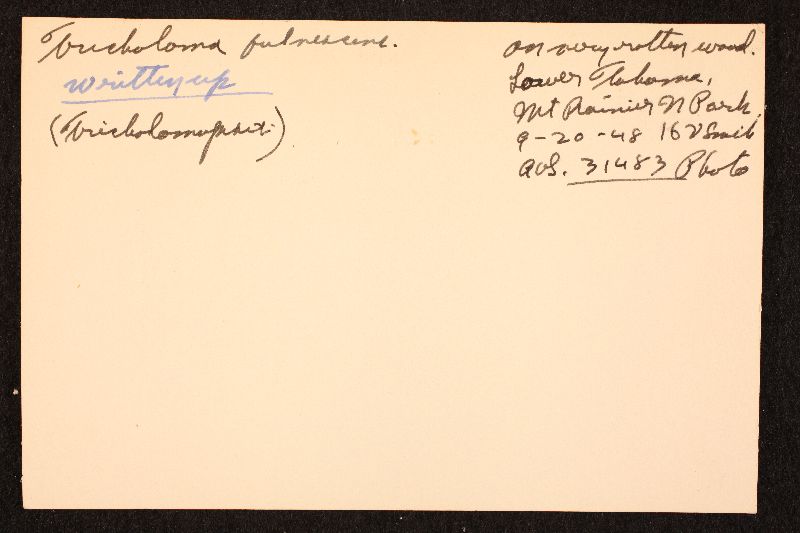 Tricholoma fulvescens.
written up
(Tricholomopsis)
on very rotten wood.
Lower Tahoma,
Mt Rainier N Park,
9-20-48 Smith
AHS. 31483 Photo